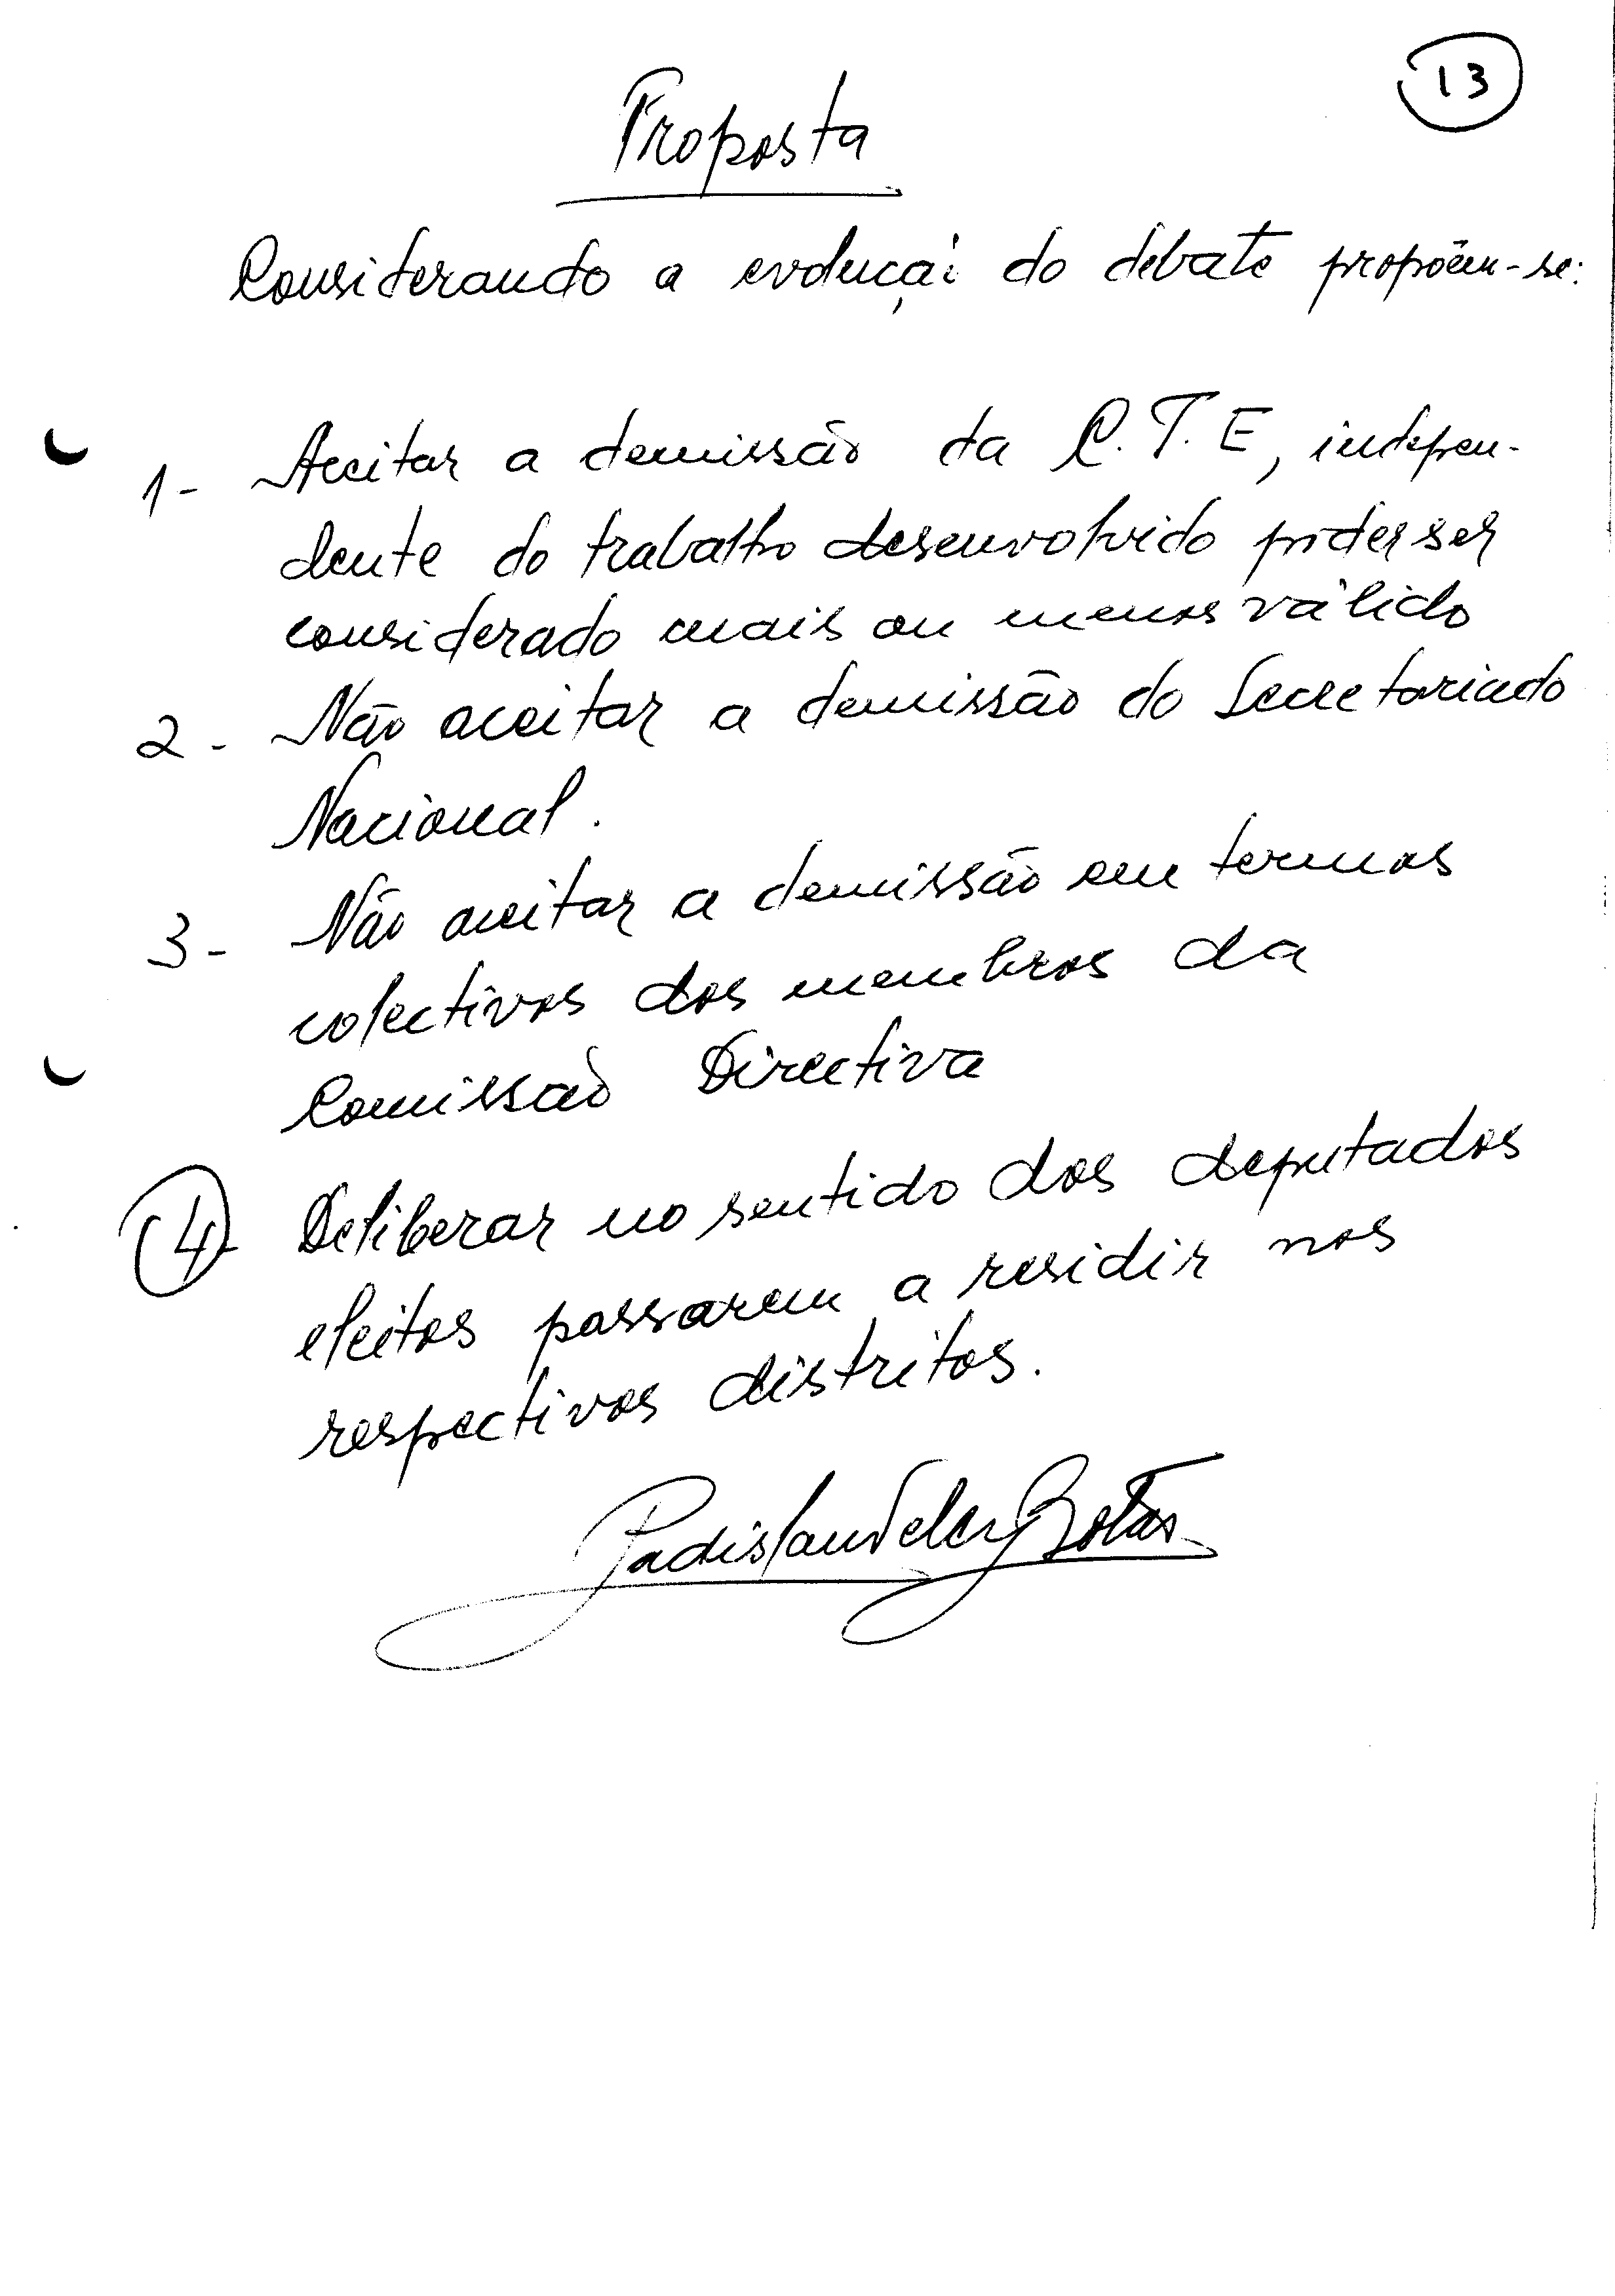 13
Proposta
Considerando a evolução do debate propõem-se:
1- Aceitar a demissão da C.T.E, indepen-
dente do trabalho desenvolvido poder ser
considerado mais ou menos válido
2- Não aceitar a demissão do Secretariado
Nacional.
3- Não aceitar a demissão em termos
colectivos dos membros da
Comissão Directiva
4- Deliberar no sentido dos deputados
eleitos passarem a residir nos
respectivos distritos.
Ladislau Teles Botas